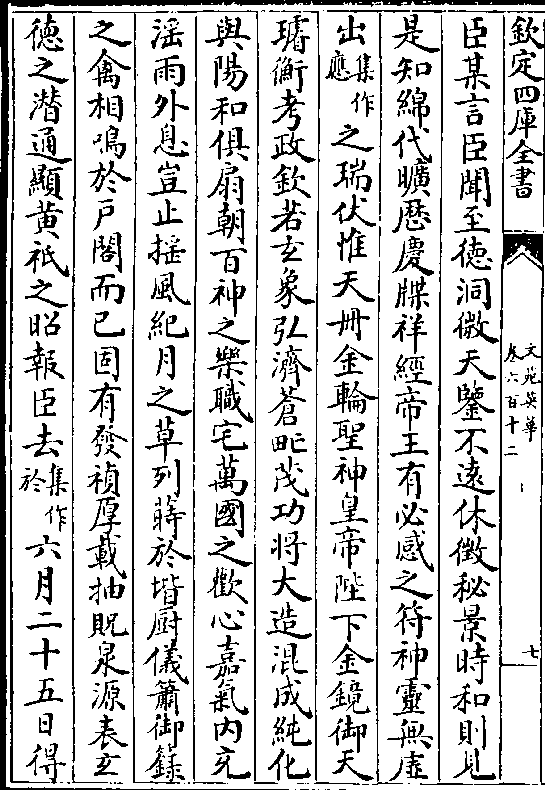 欽定四庫全書
文苑英華
卷六百十二
七
臣某言臣聞至德洞微天鑒不遠休徵秘景時和則見
是知綿代曠歷慶牒祥經帝王有必感之符神靈無虛
出集作應之瑞伏惟天冊金輪聖神皇帝陛下金鏡御天
璿衡考政欽若玄象弘濟蒼甿茂功將大造混成純化
與陽和俱扇朝百神之樂職宅萬國之歡心嘉氣内充
滛雨外息豈止揺風紀月之草列蒔於堦厨儀簫御籙
之禽相鳴於戶閣而已固有發禎厚載抽貺泉源表玄
德之潜通顯黄祇之昭報臣去集作於六月二十五日得